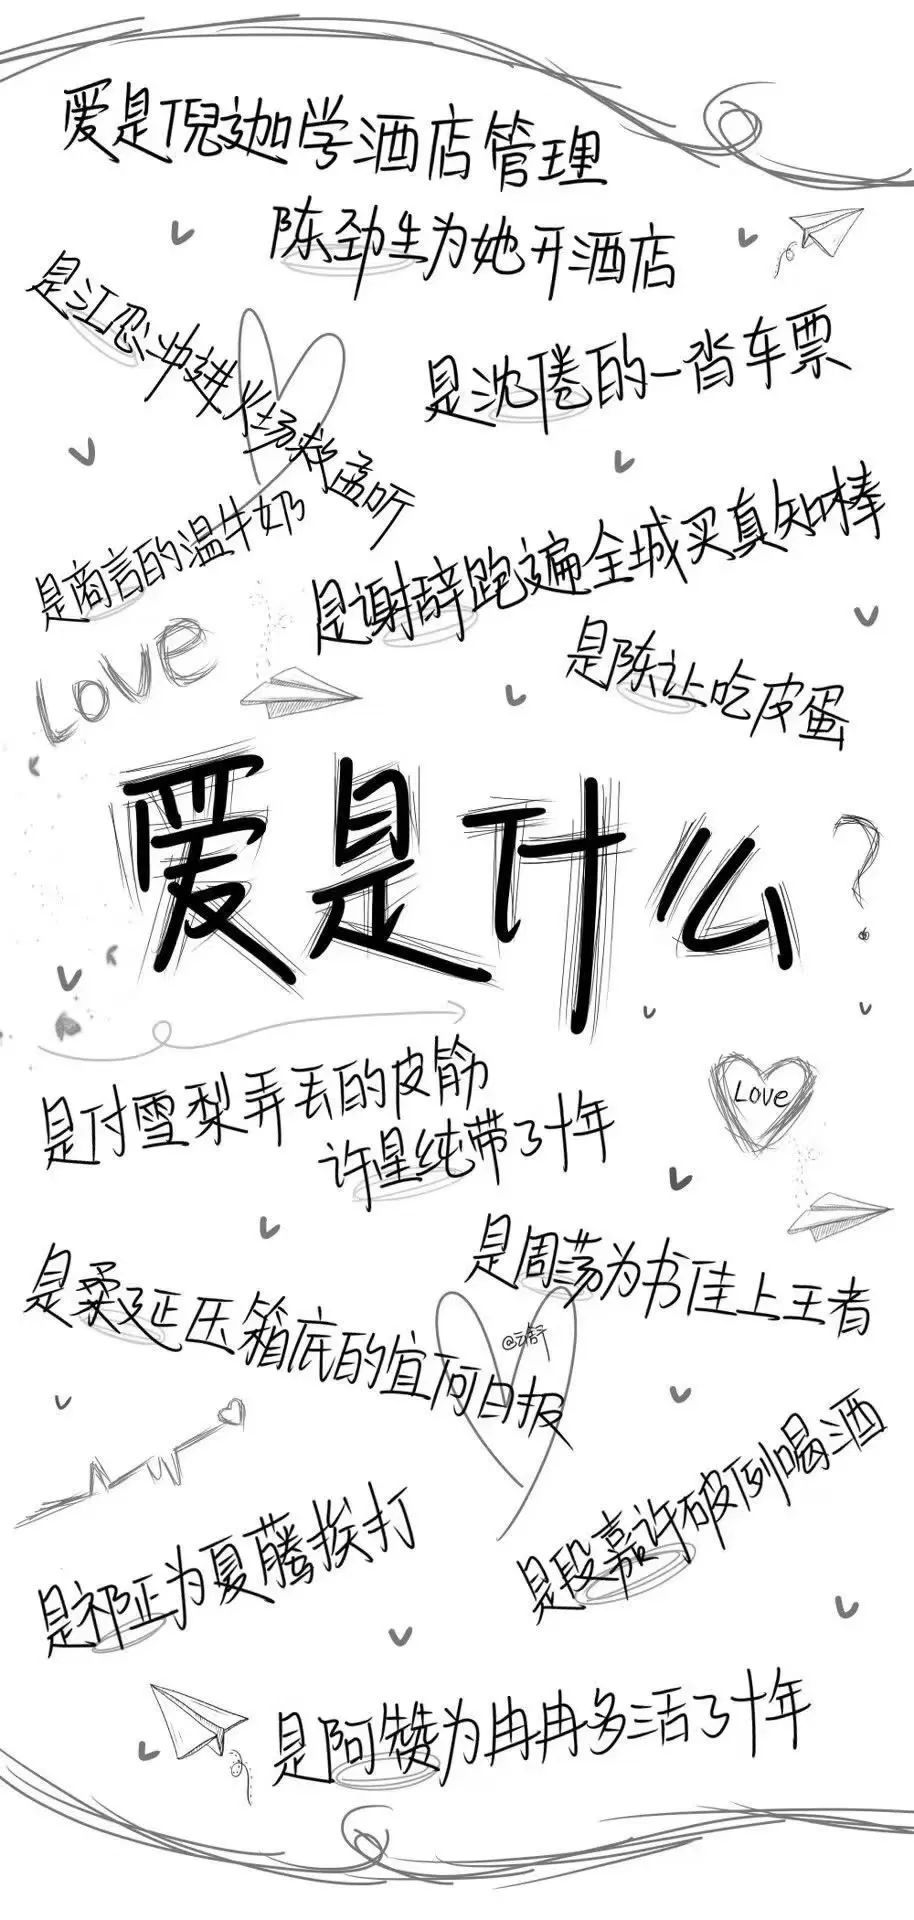 爱是倪迦学酒店管理
陈劲生为她开酒店
是江忍冲进火场救孟听
是沈倦的一沓车票
是商言的温牛奶
是谢辞跑遍全城买真知棒
Love
是陈让吃皮蛋
爱是什么?
是付雪梨弄丢的皮筋
许星纯带了十年
Love
是周荡为书佳上王者
是柔延压箱底的宜河日报
是祁正为夏藤挨打
是段嘉许破例喝酒
是阿赞为冉冉多活了十年